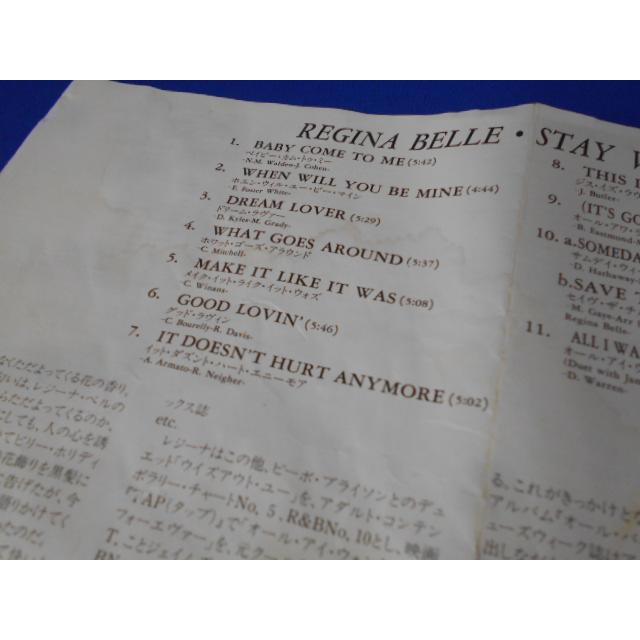 REGINA BELLE・STAY
1. BABY COME TO ME (5:42)
ベイビー・カム・トゥ・ミー
-N.M. Walden-J. Cohen-
2. WHEN WILL YOU BE MINE (4:44)
ホエン・ウィル・ユー・ビー・マイン
-E. Foster White-
3. DREAM LOVER (5:29)
ドリーム・ラヴァー
-D. Kyles-M. Grady-
4. WHAT GOES AROUND (5:37)
ホワット・ゴーズ・アラウンド
-C. Mitchell-
5. MAKE IT LIKE IT WAS (5:08)
メイク・イット・ライク・イット・ウォズ
-C. Winans-
6. GOOD LOVIN' (5:46)
グッド・ラヴィン
-C. Bourelly-R. Davis-
7. IT DOESN'T HURT ANYMORE (5:02)
イット・ダズント・ハート・エニーモア
-A. Armato-R. Neigher-
8. THIS I
ジス・イズ・ラヴ
-J. Butler-
9. (IT'S GO
オール・アワ
-B. Eastmond-
10. a. SOMEDA
サムデイ・ウィ
-D. Hathaway-
b. SAVE
セイヴ・ザ・チ
M. Gaye-Arr
Regina Belle-
11. ALL I WA
オール・アイ・ウ
(Duet with Ja
-D. Warren-
なくただよってくる花の香り、
いは、レジーナ・ベルの
らただよってくるのか。
にしても、人の心を誘
てビリー・ホリデイ
花飾りを黒髪に
に告げたが、今
語りかけてく
たのだ。
ックス誌
etc.
レジーナはこの他、ピーボ・ブライソンとのデュ
エット「ウイズアウト・ユー」を、アダルト・コンテン
ポラリー・チャートNo. 5、R&BNo. 10とし、映画
「TAP(タップ)」で「オール・アイ・ウォン
フォーエヴァー」を、元クー
T. ことジェイム
BN
る、これがきっかけと
アルバム「オール・バ
ューズウィーク誌は
出しなが